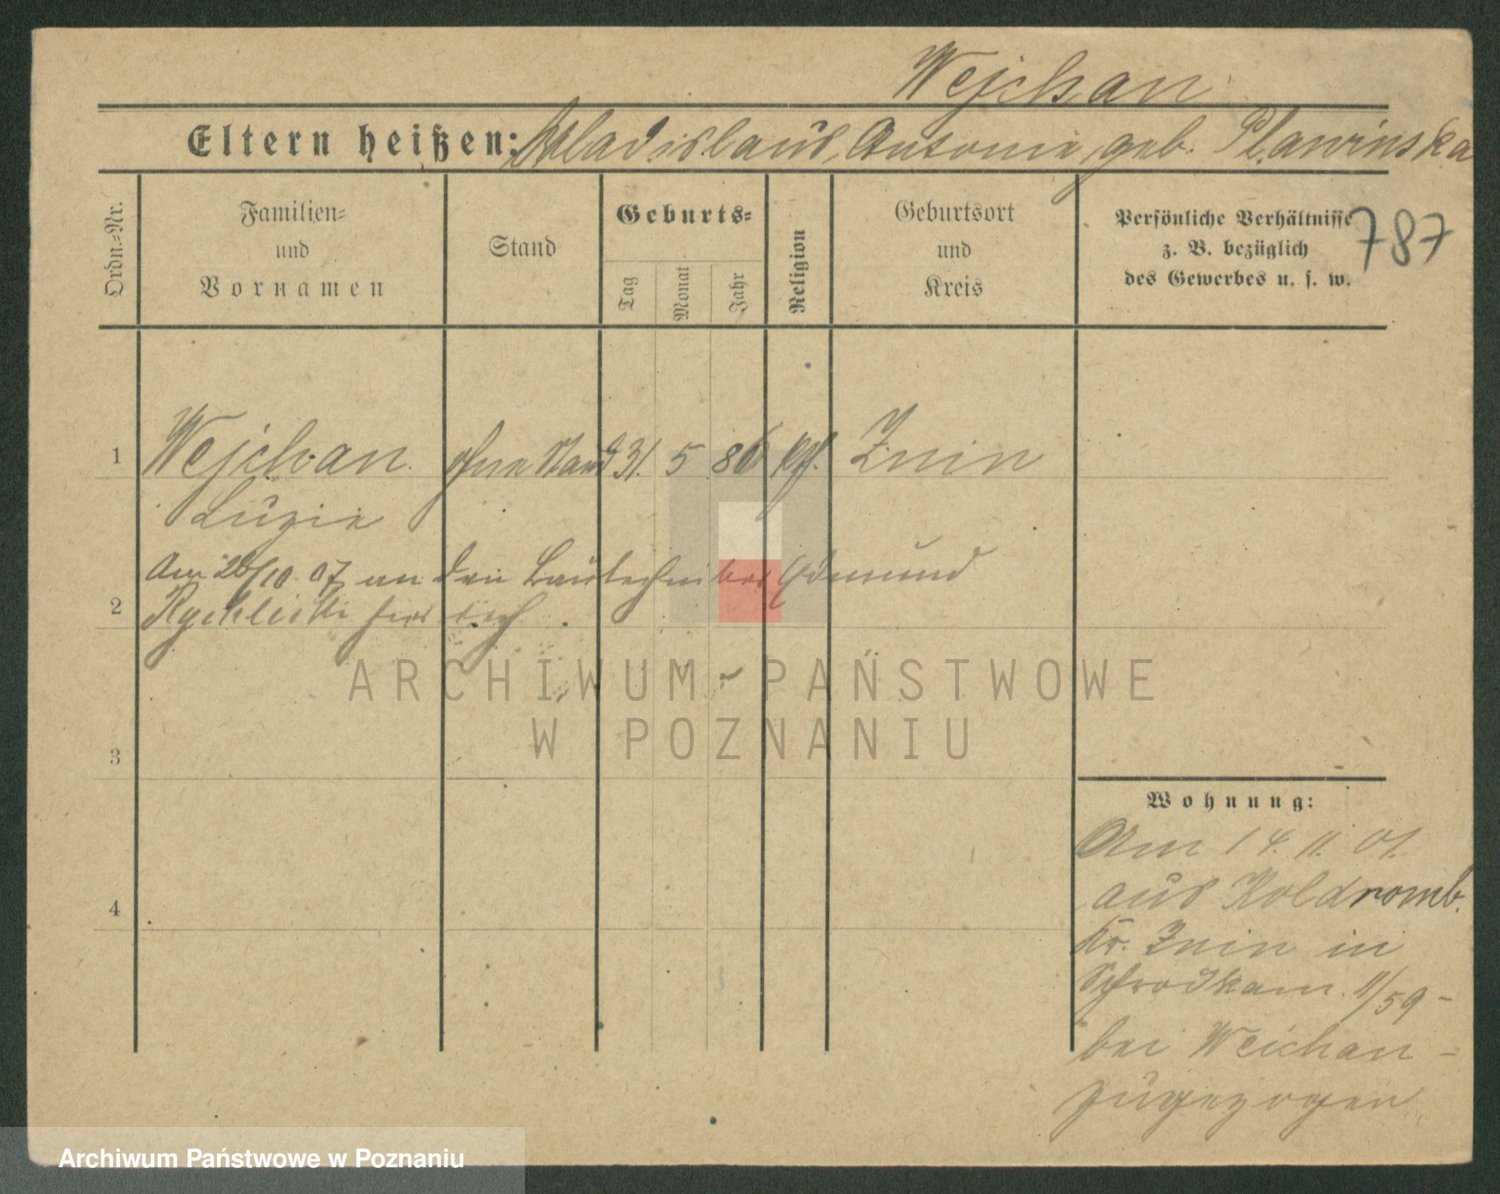 Wejchan
Eltern heißen: Wladislaus, Antonie, geb. Plawinska
Ordn.-Nr.
Familien-
und
Vornamen
Stand
Geburts-
Tag
Monat
Jahr
Religion
Geburtsort
und
Kreis
Persönliche Verhältnisse
z. B. bezüglich
des Gewerbes u. s. w.
787
1 Wejchan ohne Stand 31. 5 86 Znin
Luzie
Am 26/10 07 an den Bautechniker Edmund
2 Rychlicki
3
4
ARCHIWUM PAŃSTWOWE
W POZNANIU
Wohnung:
Am 14. 11. 01.
aus Koldromb.
Kr. Znin in
11/59 -
bei Weichan -
zugezogen
Archiwum Państwowe w Poznaniu